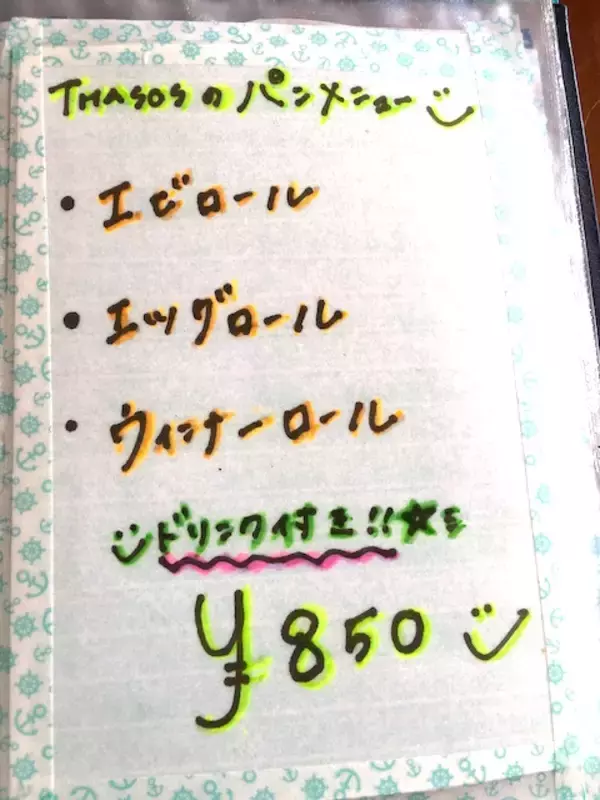 THASOSのパンメニュー
・エビロール
・エッグロール
・ウィンナーロール
ドリンク付き!!★
¥850